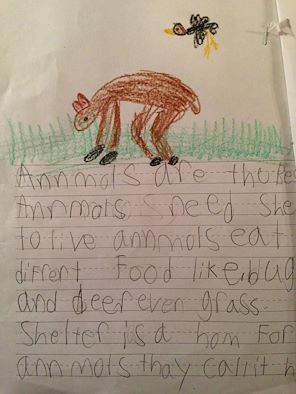 Annmols are the bes
Annmols need She
to live annmols eat
diffrent Food like, bug
and deer even grass.
Shelter is a hom For
annmols thay call it h